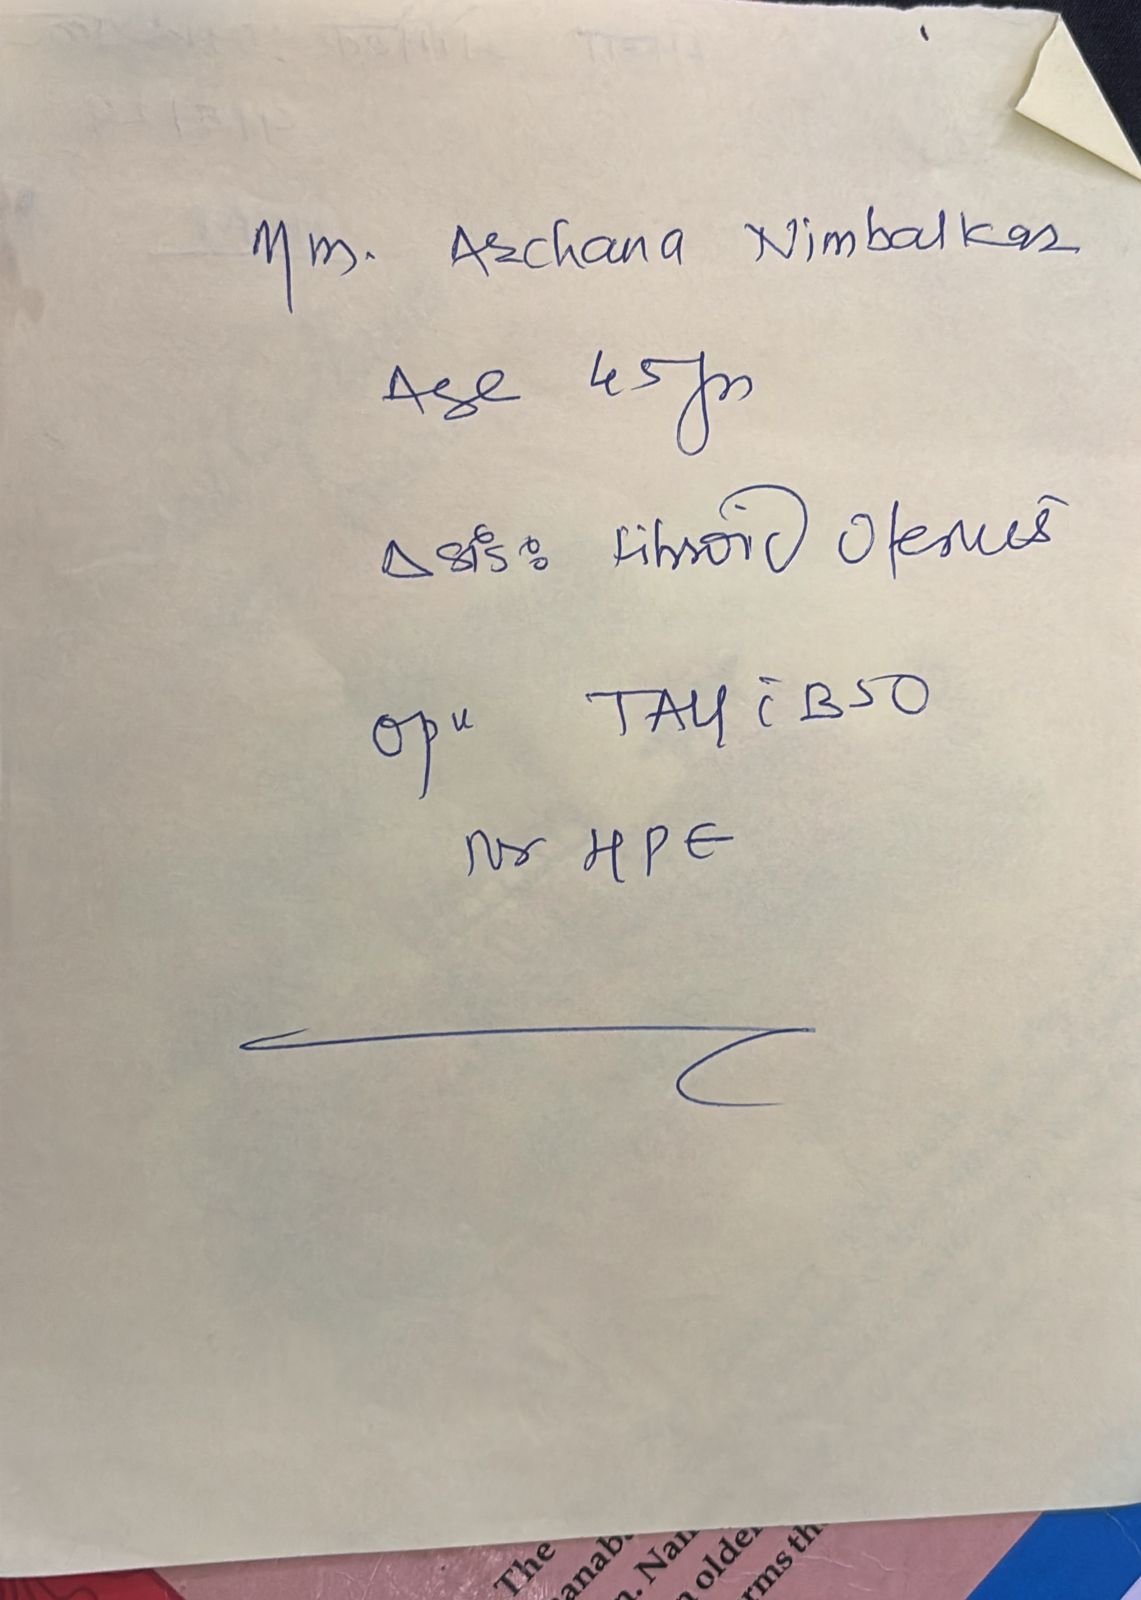 Mrs. Archana Nimbalkar
Age 45 yrs
Δsis: Fibroid Uterus
Opn TAH c̄ BSO
Nr HPE
The
anab
n. Nan
n older
rms th